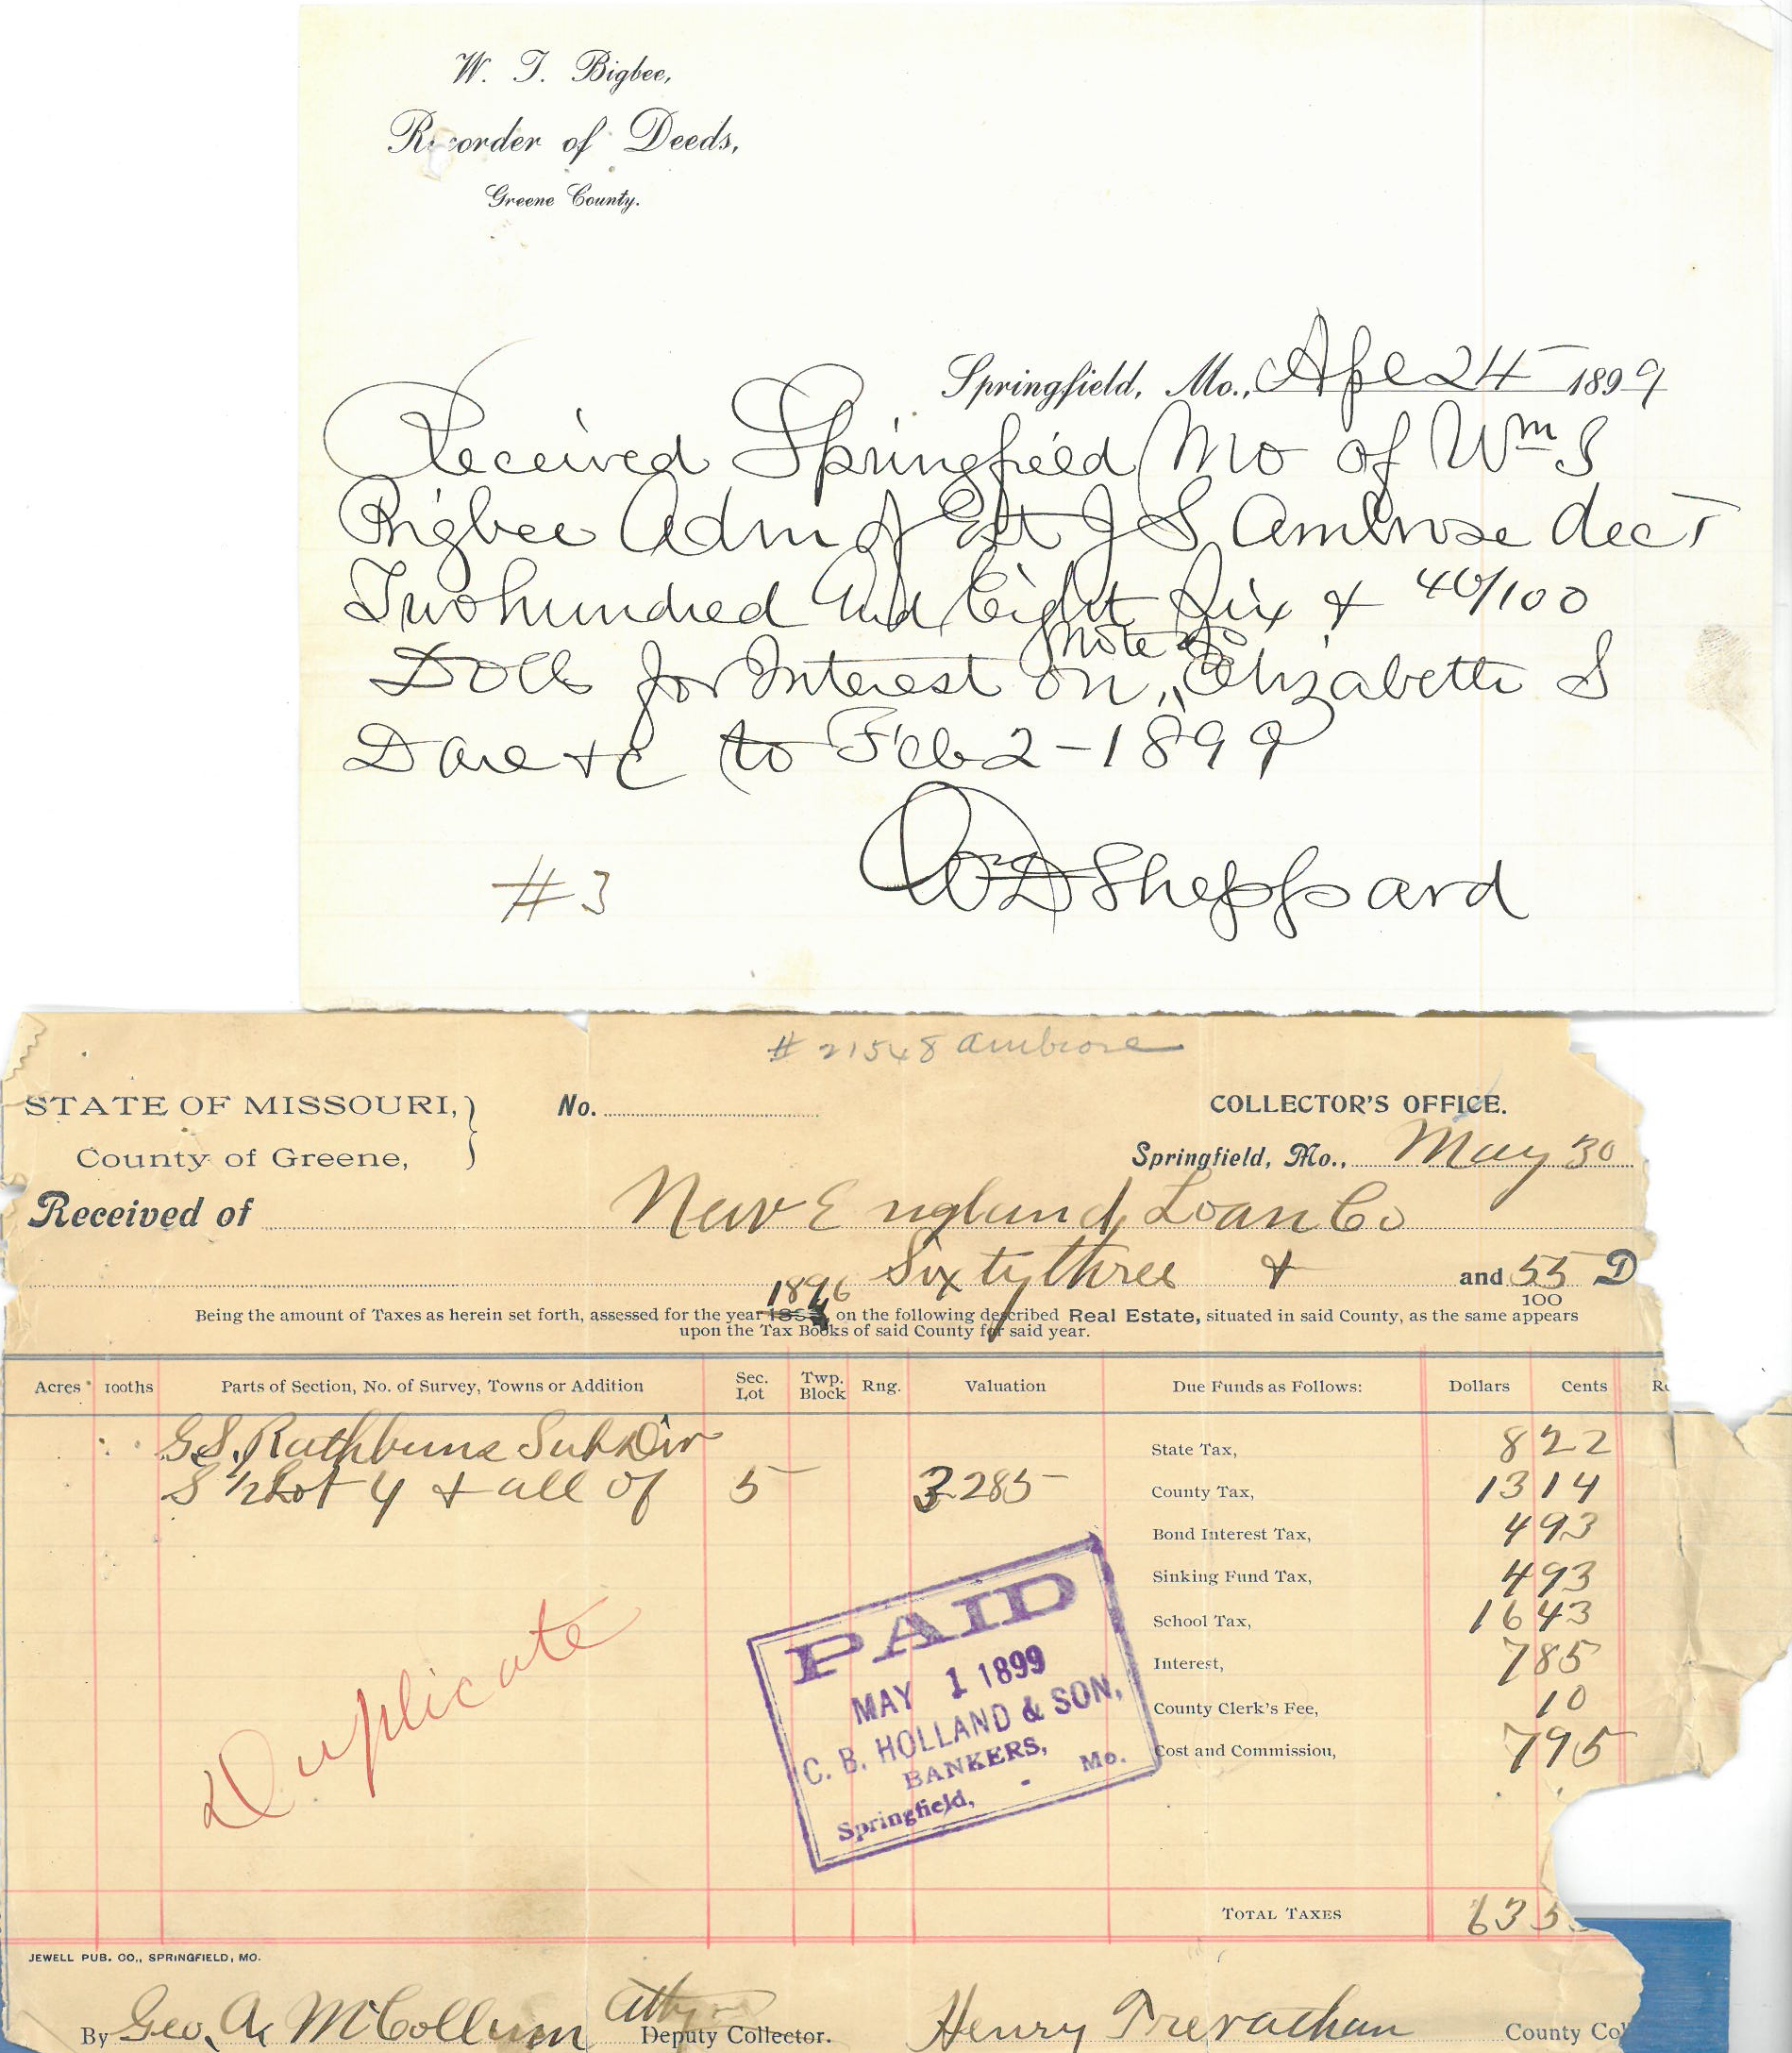 W. T. Bigbee,
Recorder of Deeds,
Greene County.
Springfield, Mo., Apl 24 1899
Received Springfield Mo of Wm S
Bigbee Adm of Est J S Ambrose dec'd
Two hundred And Eight Six & 40/100
Note of
Dolls for Interest on Elizabeth S
Dare &c to Feb 2-1899
Wm D Sheppard
#3
# 21548 Ambrose
STATE OF MISSOURI,
County of Greene,
No.
COLLECTOR'S OFFICE.
Springfield, Mo., May 30
Received of New England Loan Co
Sixty three & and 55/100 D
1896
Being the amount of Taxes as herein set forth, assessed for the year on the following described Real Estate, situated in said County, as the same appears
upon the Tax Books of said County for said year.
Acres 100ths Parts of Section, No. of Survey, Towns or Addition Sec. Lot Twp. Block Rng. Valuation Due Funds as Follows: Dollars Cents
G.S. Rathbuns Sub Div State Tax, 8 22
S 1/2 Lot 4 & all of 5 3285 County Tax, 13 14
Bond Interest Tax, 4 93
Sinking Fund Tax, 4 93
School Tax, 16 43
Interest, 7 85
County Clerk's Fee, 10
Cost and Commission, 7 95
Duplicate
PAID
MAY 1 1899
C. B. HOLLAND & SON,
BANKERS,
Springfield, - Mo.
TOTAL TAXES 63 5
JEWELL PUB. CO., SPRINGFIELD, MO.
By Geo. A. McCollum Deputy Collector. Henry Trevathan County Col